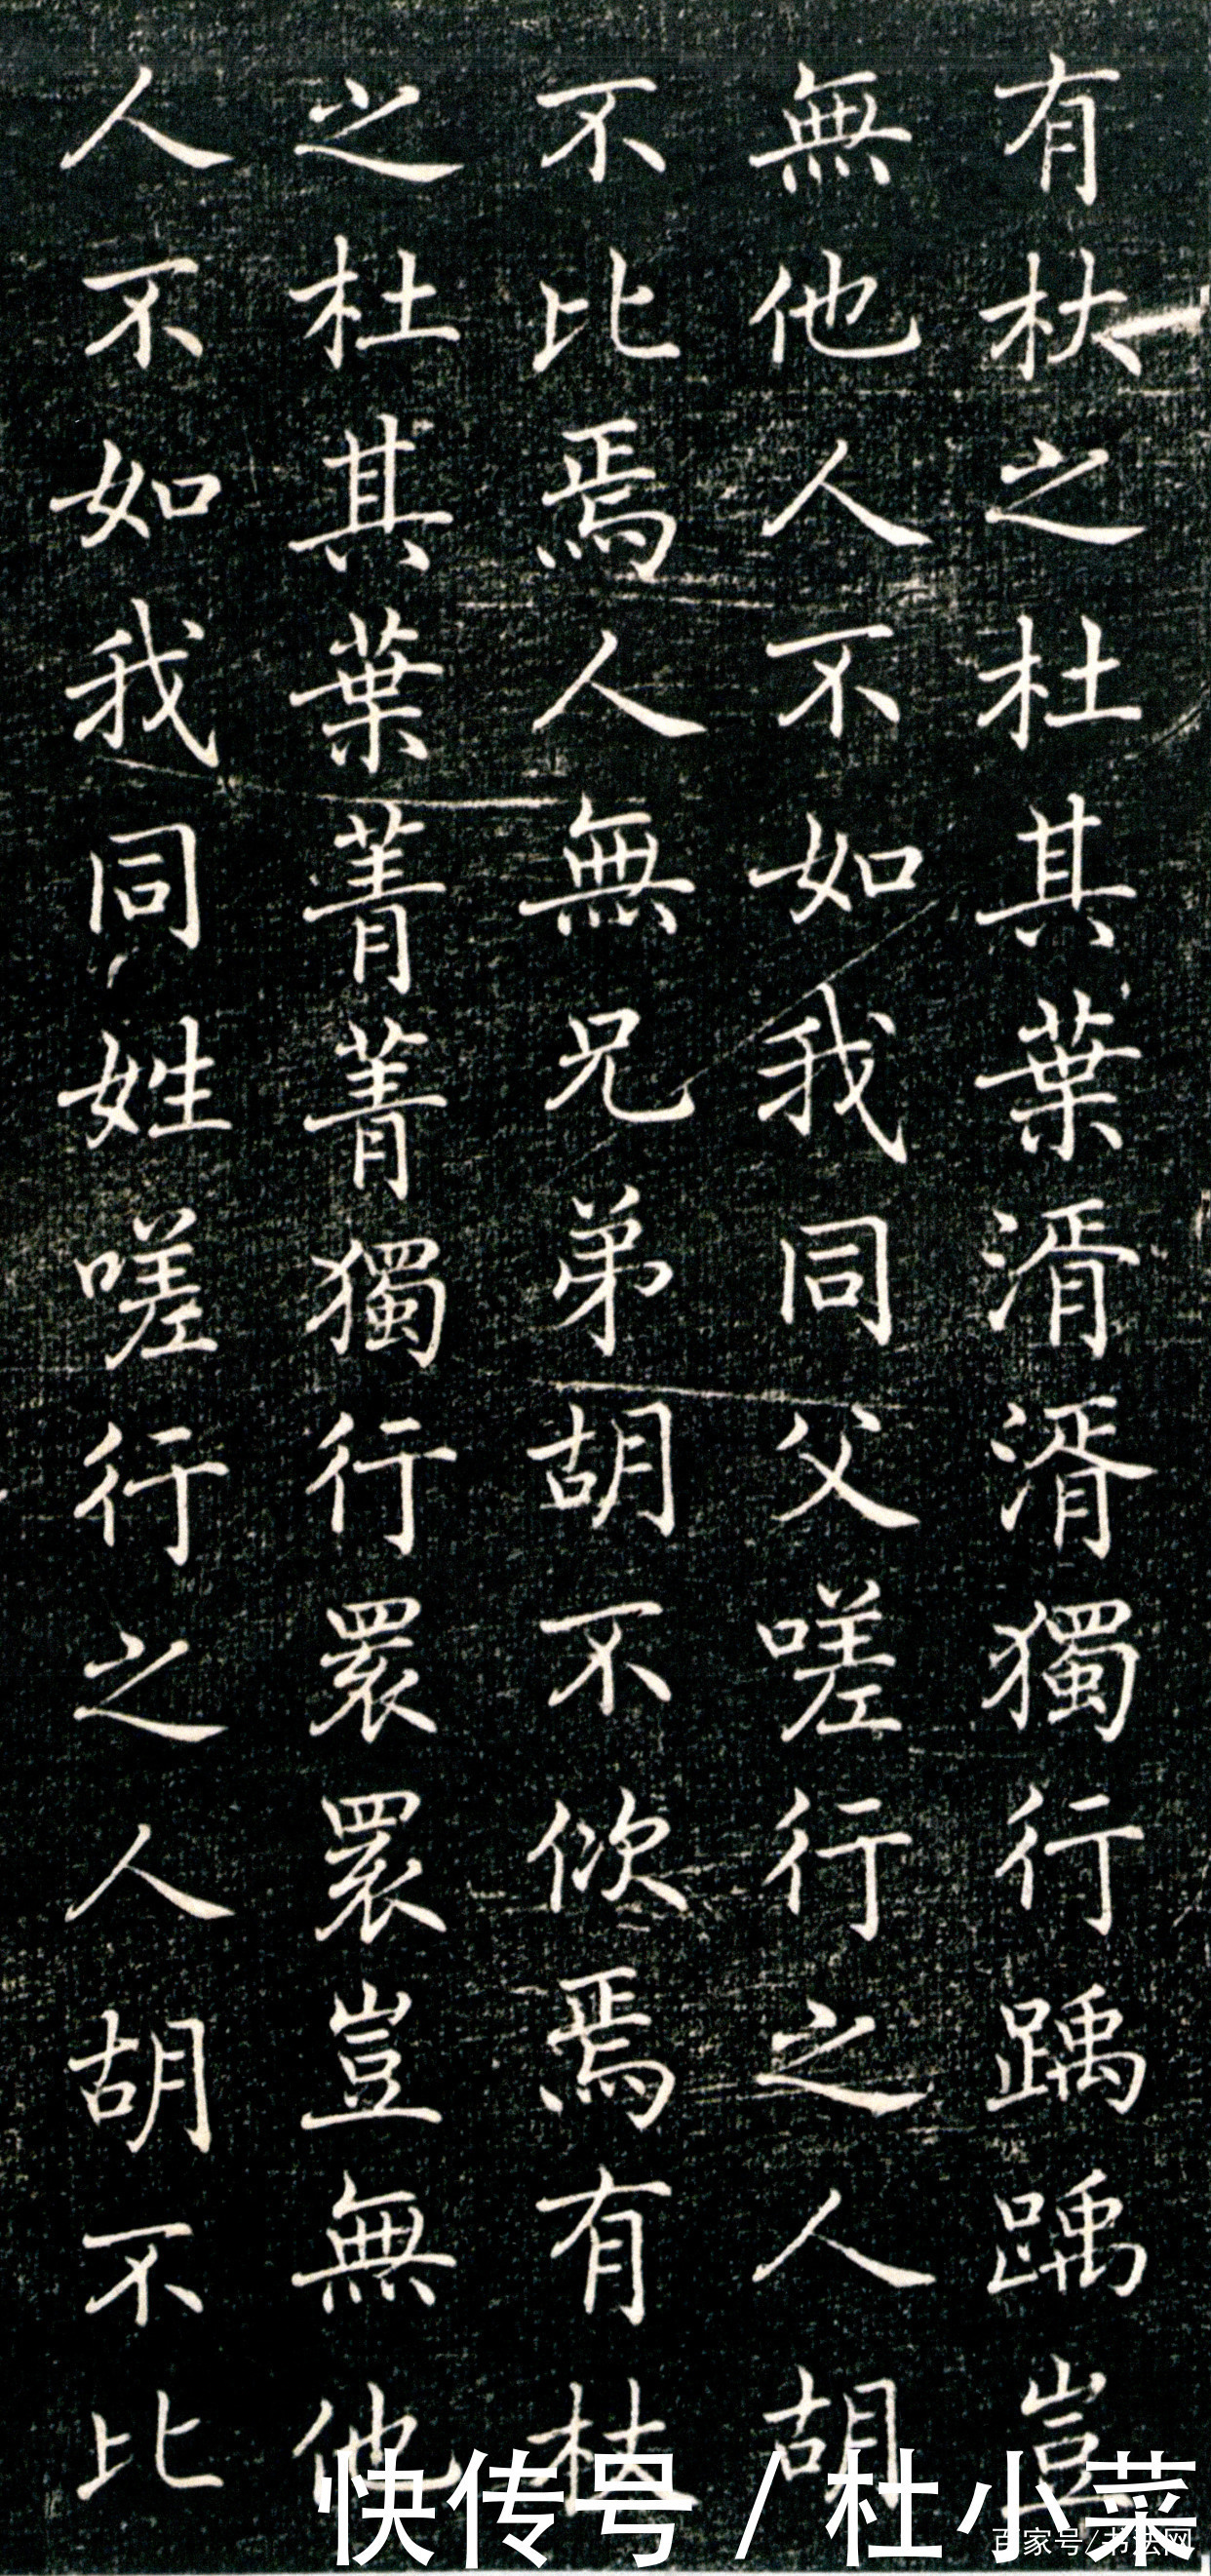 有杕之杜其葉湑湑獨行踽踽豈
無他人不如我同父嗟行之人胡
不比焉人無兄弟胡不佽焉有杕
之杜其葉菁菁獨行睘睘豈無他
人不如我同姓嗟行之人胡不比
快传号 / 杜小菜
百家号/书法网